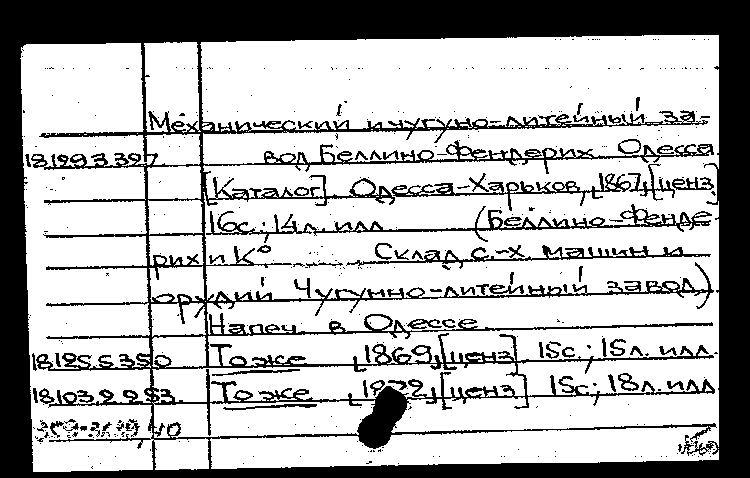 Механический и чугуно-литейный за-
18.199.3.397 вод Беллино-Фендерих. Одесса
[Каталог]. Одесса-Харьков, 1867, [ценз]
16с.; 14л. илл. (Беллино-Фенде-
рих и К° Склад с.-х. машин и
орудий Чугунно-литейный завод)
Напеч. в Одессе
18.125.5.350 То же [1869] [ценз] 15с.; 15л. илл.
18.103.2.253. То же [ценз] 15с; 18л. илл